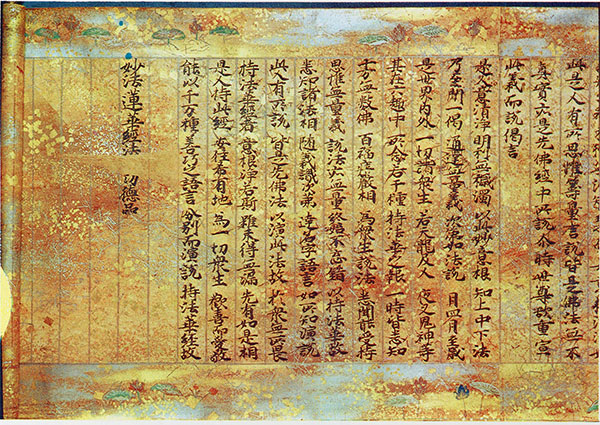 是人有所思惟籌量言說皆是佛法無不
真實亦是先佛經中所說尒時世尊欲重宣
此義而說偈言
是人意清淨 明利無穢濁 以此妙意根 知上中下法
乃至聞一偈 通達無量義 次第如法說 月四月至歲
是世界內外 一切諸衆生 若天龍及人 夜叉鬼神等
其在六趣中 所念若干種 持法華之報 一時皆悉知
十方無數佛 百福莊嚴相 為衆生說法 悉聞能受持
思惟無量義 說法亦無量 終始不忘錯 以持法華故
悉知諸法相 隨義識次第 達名字語言 如所知演說
此人有所說 皆是先佛法 以演此法故 於衆無所畏
持法華經者 意根淨若斯 雖未得無漏 先有如是相
是人持此經 安住希有地 為一切衆生 歡喜而愛敬
能以千万種 善巧之語言 分別而演說 持法華經故
妙法蓮華經法 功德品